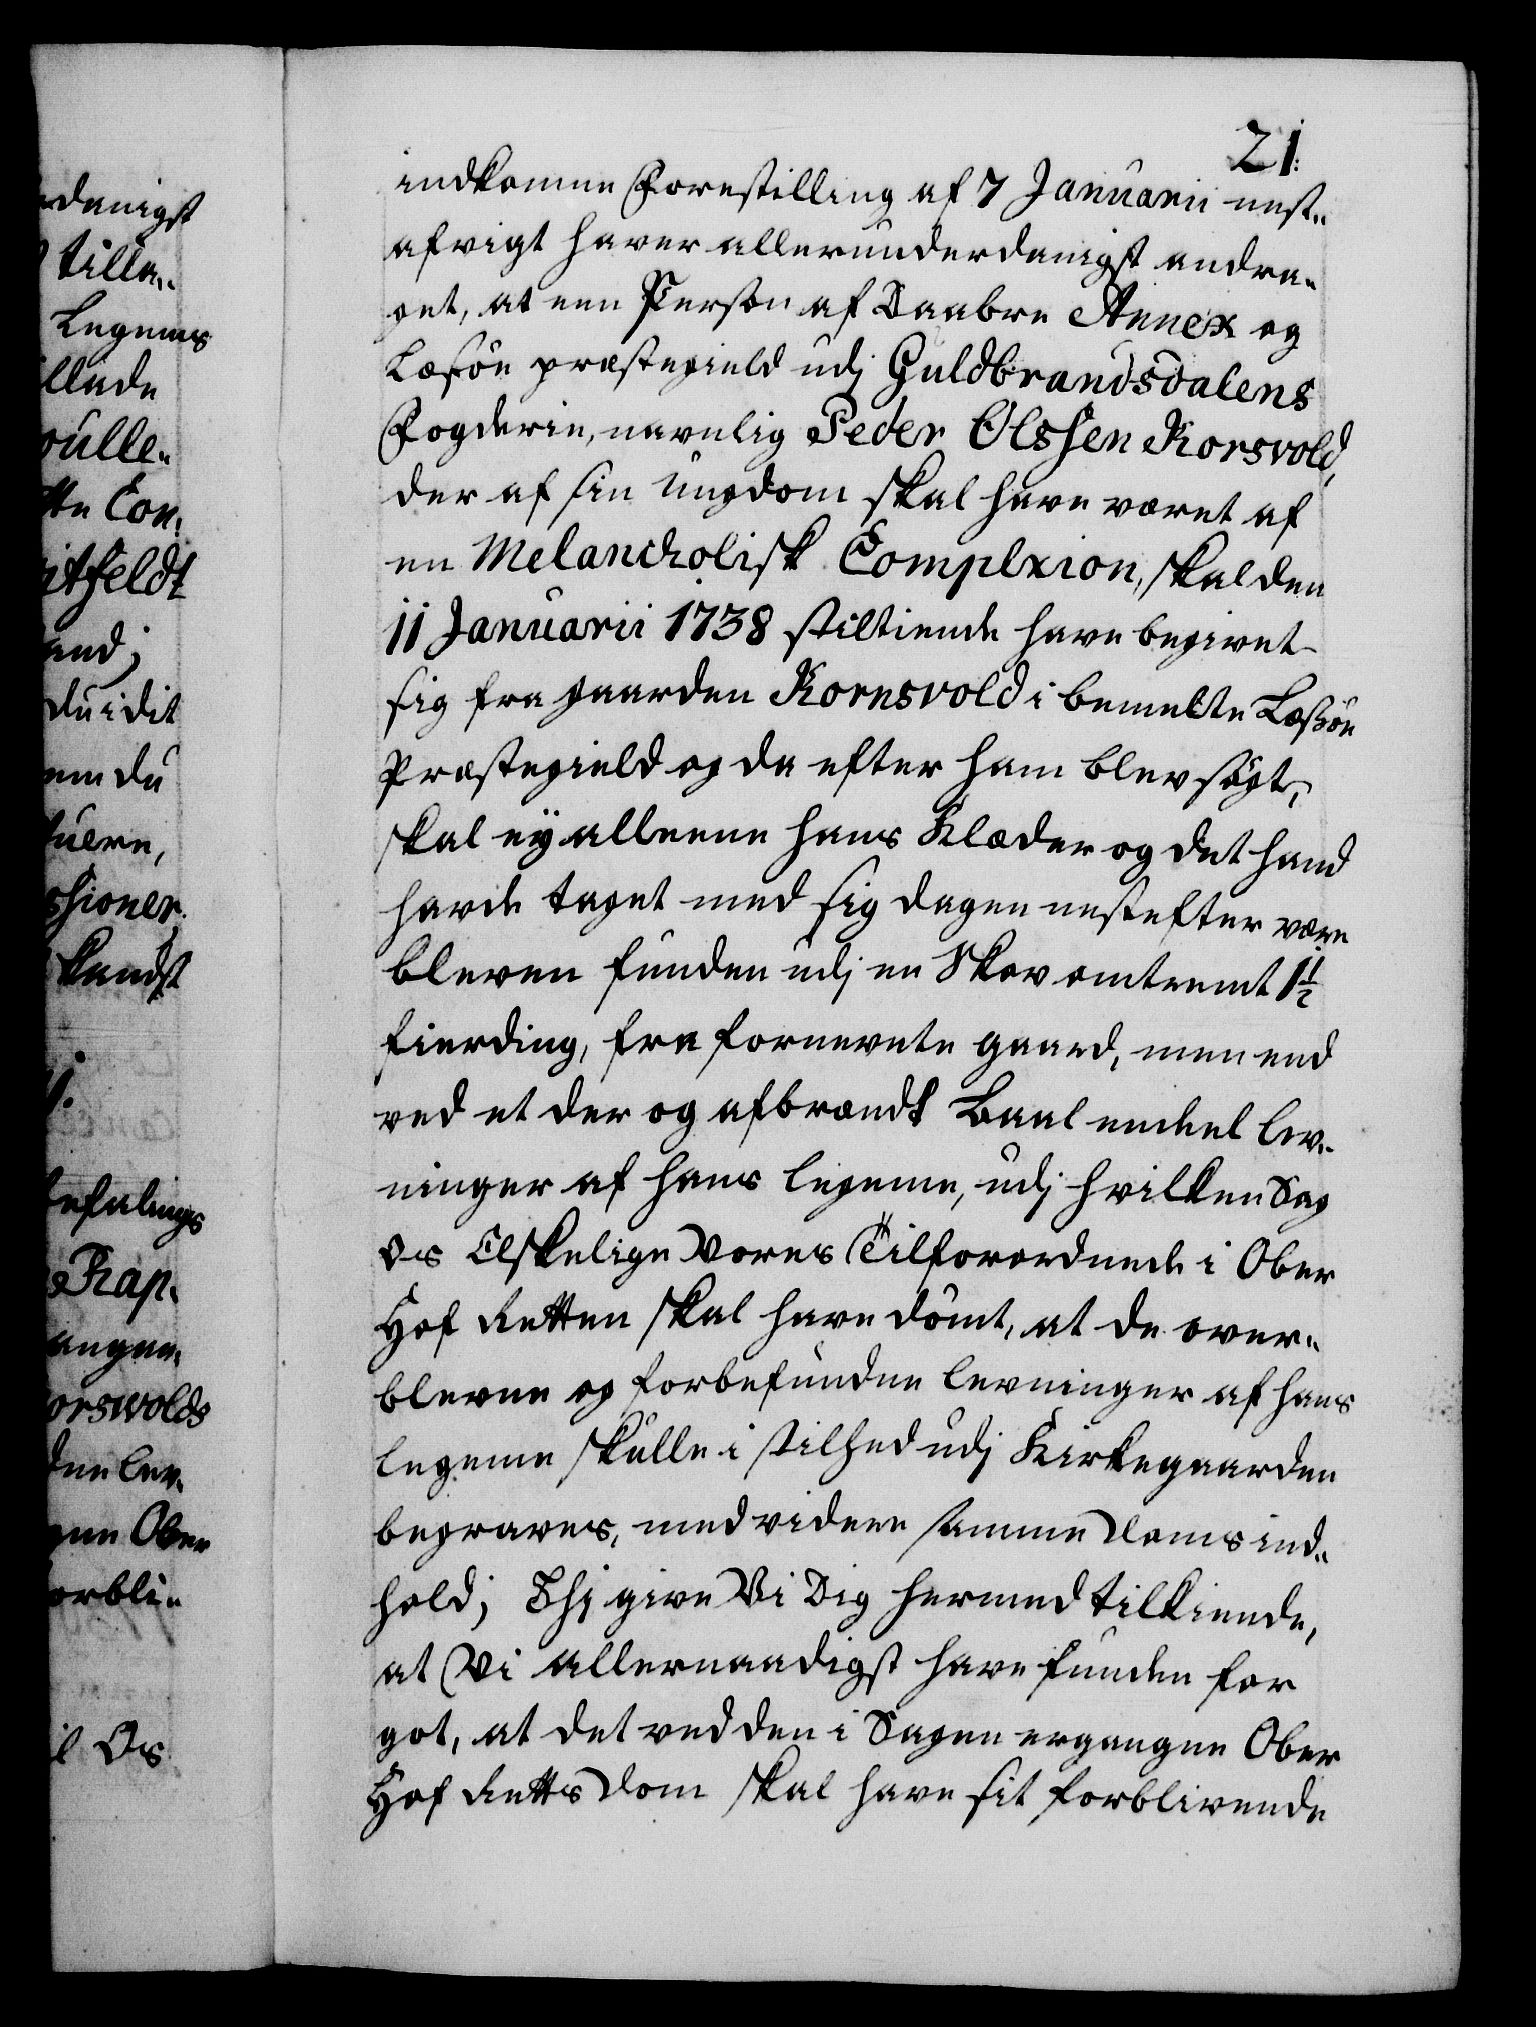 21.
indkomne Forestilling af 7 Januarii nest„
afvigt haver allerunderdanigst andra„
get, at een Person af Daabre Annex og
Læsöe præstegield udj Guldbrandsdalens
Fogderie, navnlig Peder Olssen Korsvold,
der af sin Ungdom skal have været af
en Melancholisk Complexion, skal den
11 Januarii 1738 stiltiende have begivet
sig fra gaarden Kornsvold i bemelte Læssöe
Præstegield og da efter ham blev søgt,
skal ey alleene hans Klæder og det hand
havde taget med sig dagen nestefter være
bleven funden udj en Skov omtrent 1½
fierding, fra fornevnte gaard, men end
ved et der og afbrændt Baal endeel lev„
ninger af hans legeme, udj hvilken Sag
Os Elskelige Vores Tilforordnede i Ober
Hof Retten skal have dömt, at de over„
blevne og forbefundne levninger af hans
legeme skulle i stilhed udj Kirkegaarden
begraves, med videre samme Doms ind„
hold; Thj give Vi Dig hermed tilkiende,
at Vi allernaadigst have funden for
got, at det ved den i Sagen ergangne Ober
Hof Retts Dom skal have sit forblivende
danigst
tilla„
Legems
llade
Con„
itfeldt
and;
du i dit
em du
kandst
befalings
Rap„
angne„
orswolds
lev„
Ober
orbli„
Os